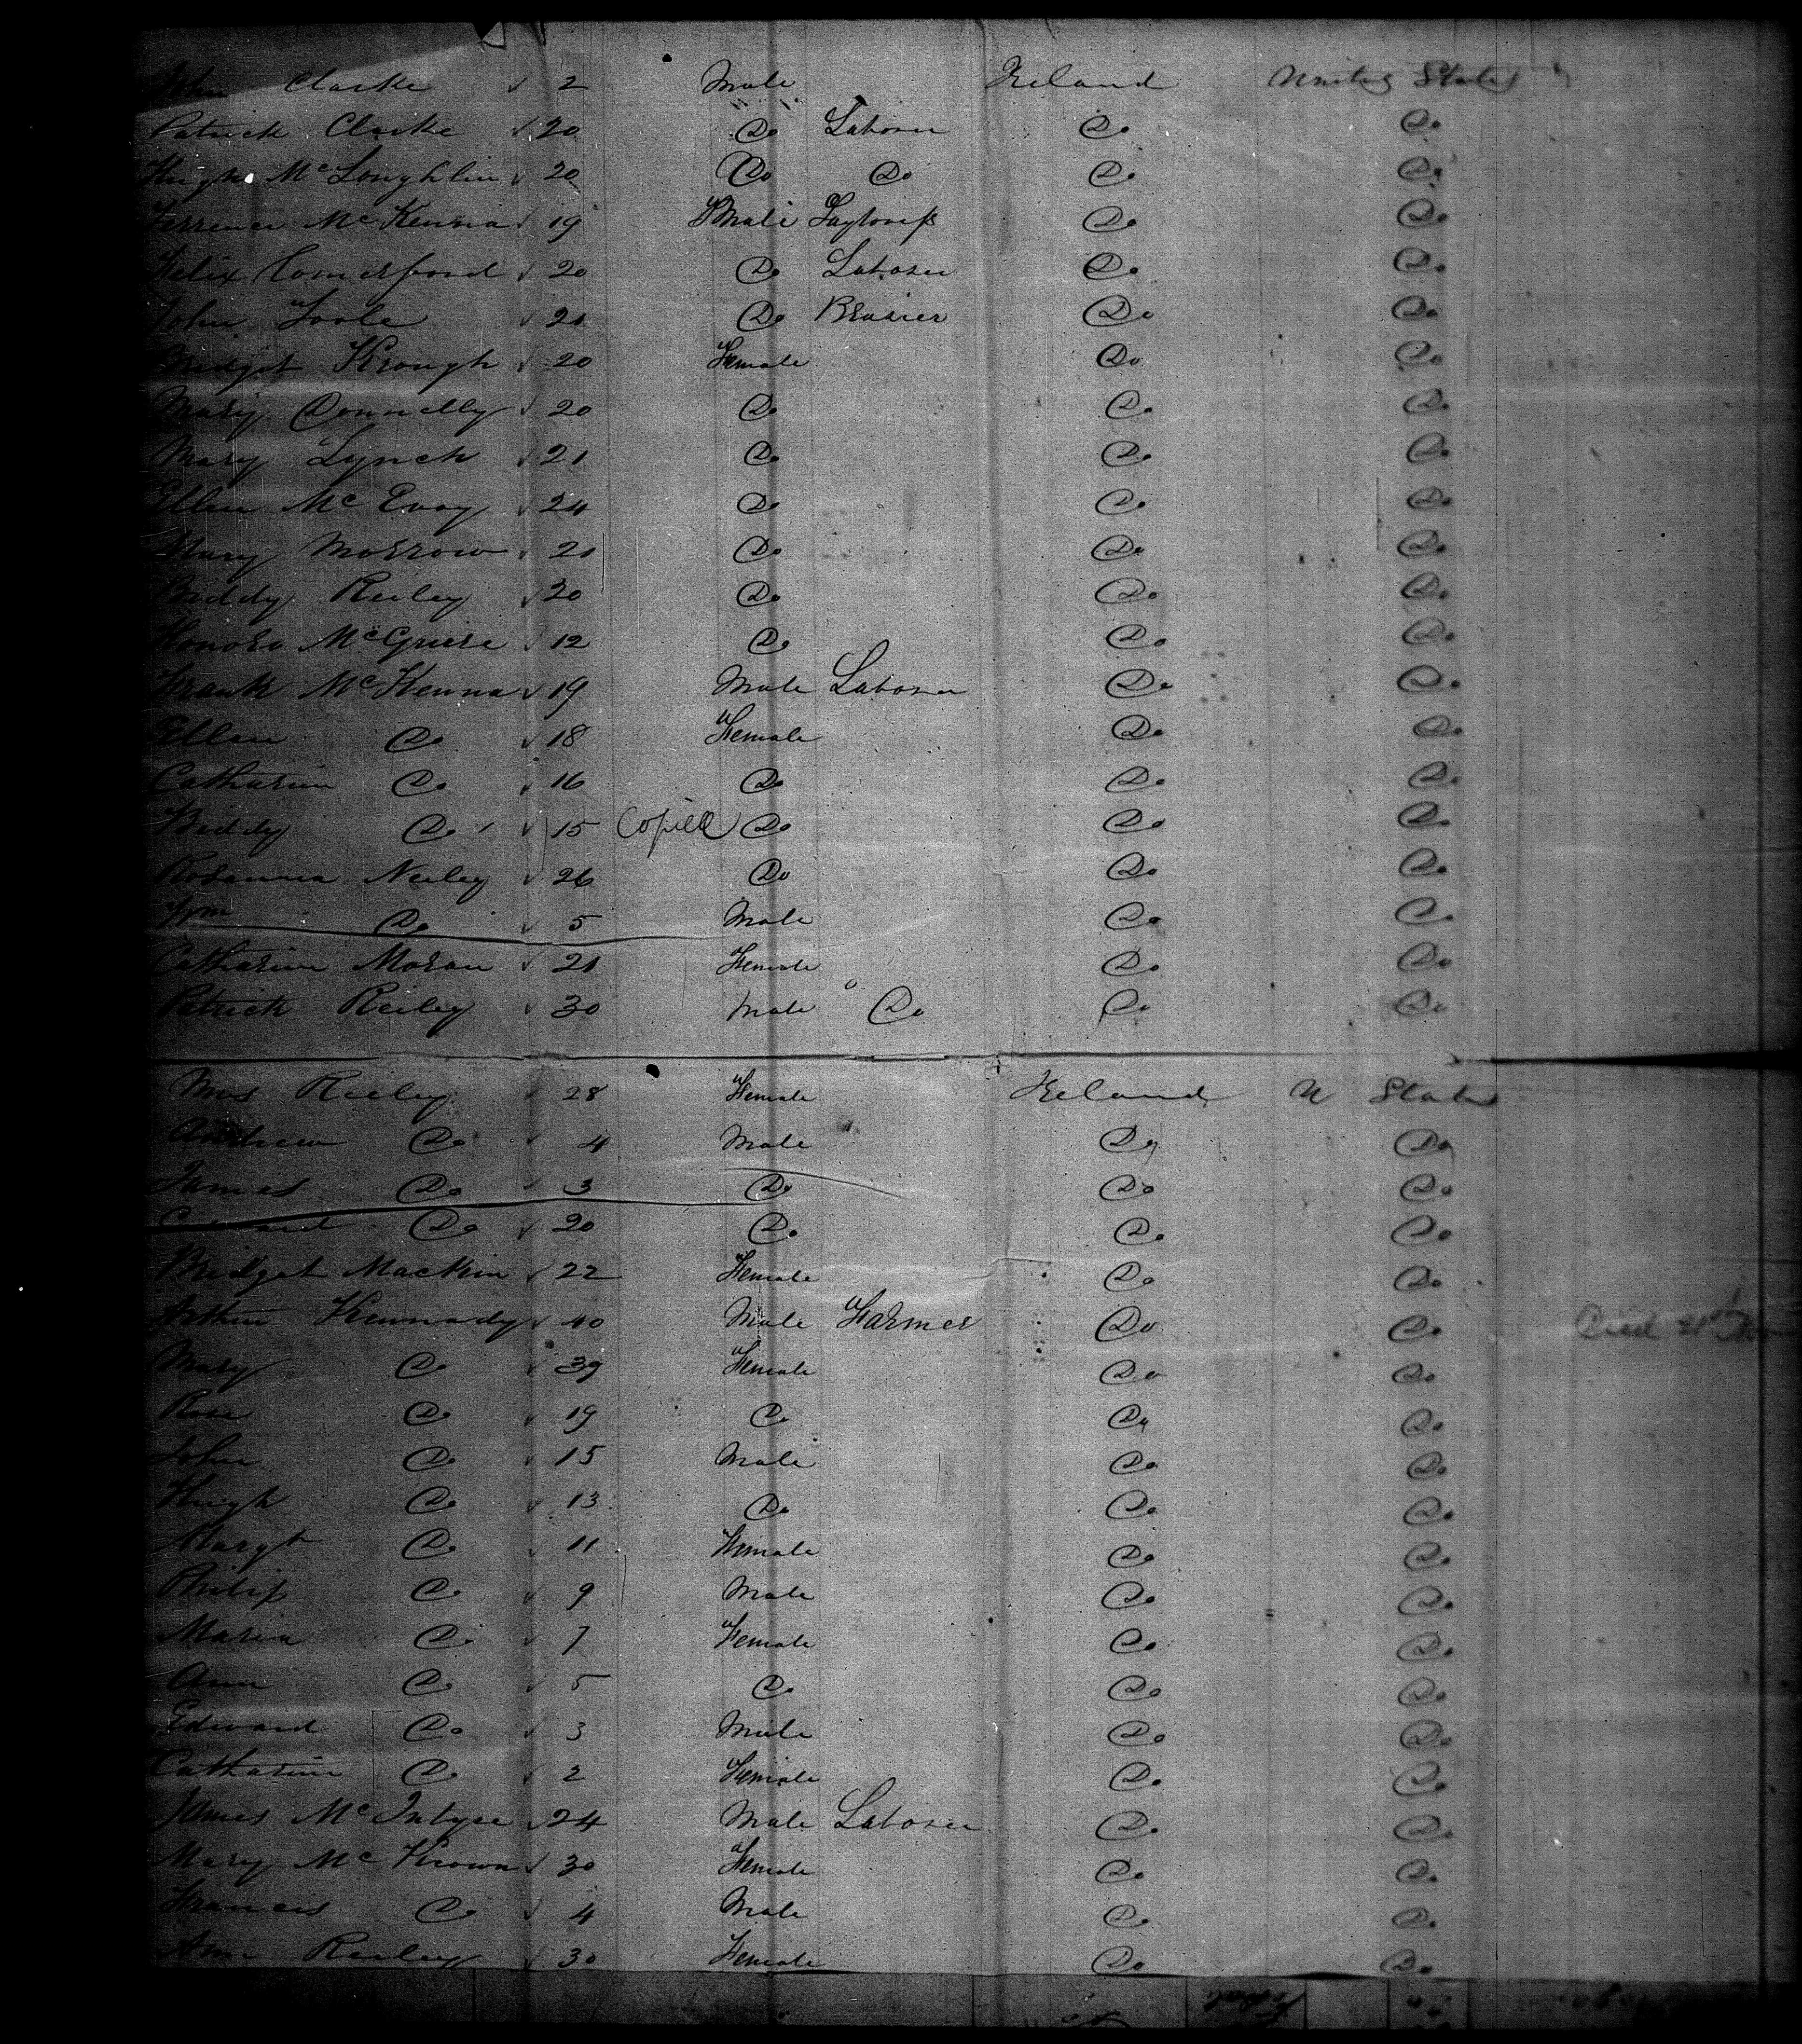 John Clarke 2 Male Ireland United States
Patrick Clarke 20 Do Laborer Do Do
Hugh McLoughlin 20 Do Do Do Do
Terrence McKenna 19 Male Do Do
Felix Comerford 20 Do Laborer Do Do
John Toole 21 Do Brasier Do Do
Bridget Krough 20 Female Do Do
Mary Donnelly 20 Do Do Do
Mary Lynch 21 Do Do Do
Ellen McEvoy 24 Do Do Do
Mary Morrow 21 Do Do Do
Biddy Reiley 20 Do Do Do
Honora McGuire 12 Do Do Do
Frank McKenna 19 Male Laborer Do Do
Ellen Do 18 Female Do Do
Catharine Do 16 Do Do Do
Biddy Do 15 Copied Do Do Do
Rosanna Neiley 26 Do Do Do
Do 5 Male Do Do
Catharine Moran 21 Female Do Do
Patrick Reiley 30 Male Do Do Do
Mrs Reiley 28 Female Ireland U States
Andrew Do 4 Male Do Do
James Do 3 Do Do Do
Do 20 Do Do Do
Bridget Mackin 22 Female Do Do
Arthur Kennady 40 Male Farmer Do Do Died
Mary Do 39 Female Do Do
Rose Do 19 Do Do Do
John Do 15 Male Do Do
Hugh Do 13 Do Do Do
Margt Do 11 Female Do Do
Philip Do 9 Male Do Do
Maria Do 7 Female Do Do
Ann Do 5 Do Do Do
Edward Do 3 Male Do Do
Catharine Do 2 Female Do Do
James McIntyre 24 Male Laborer Do Do
Mary McKrown 30 Female Do Do
Francis Do 4 Male Do Do
Ann Reiley 30 Female Do Do